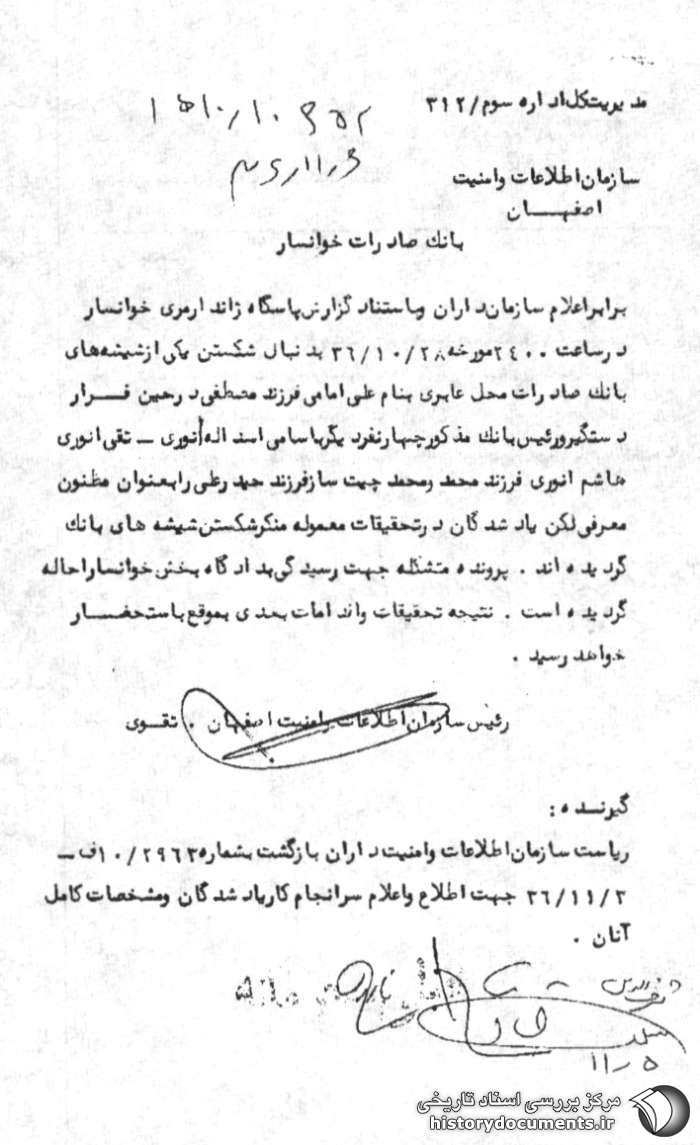 مدیریت کل اداره سوم/۳۱۲
سازمان اطلاعات وامنیت
اصفهــان
بانك صادرات خوانسار
برابراعلام سازمان داران وباستناد گزارش پاسگاه ژاندارمری خوانسار
درساعت ۲۴۰۰مورخه ۳۶/۱۰/۲۸ بدنبال شکستن یکی ازشیشه‌های
بانك صادرات محل عابری بنام علی امامی فرزند مصطفی درحین فــرار
دستگیرورئیس بانك مذکورچهارنفردیگرباسامی اسد اله انوری ــ تقی انوری
هاشم انوری فرزند محمد ومحمد چیت سازفرزند حیدرعلی رابعنوان مظنون
معرفی لکن یاد شدگان درتحقیقات معموله منکرشکستن شیشه های بانك
گردیده اند . پرونده متشکله جهت رسیدگی بدادگاه بخش خوانساراحاله
گردیده است . نتیجه تحقیقات واقدامات بعدی بموقع باستحضــار
خواهد رسید .
رئیس سازمان اطلاعات وامنیت اصفهان . تقــوی
گیرنــده :
ریاست سازمان اطلاعات وامنیت داران بازگشت بشماره ۱۰/۲۹۶۳ف ــ
۳۶/۱۱/۲ جهت اطلاع واعلام سرانجام کاریاد شدگان ومشخصات کامل
آنان .
۵ ر۱۱
مرکز بررسی اسناد تاریخی
historydocuments.ir